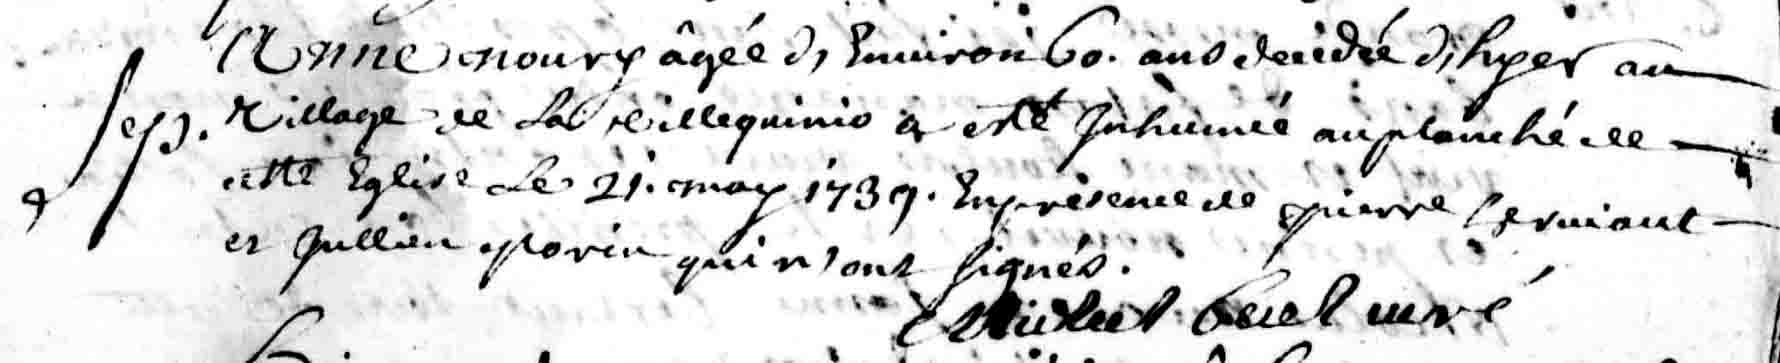 Anne moury âgée d'Environ 60. ans decedée d'hyer au
Sep. Village de La villequinio a esté Inhumée au planché de
cette Eglise Le 21. may 1739. En présence de pierre Serviant
et Jullien morin qui n'ont signés.
curé